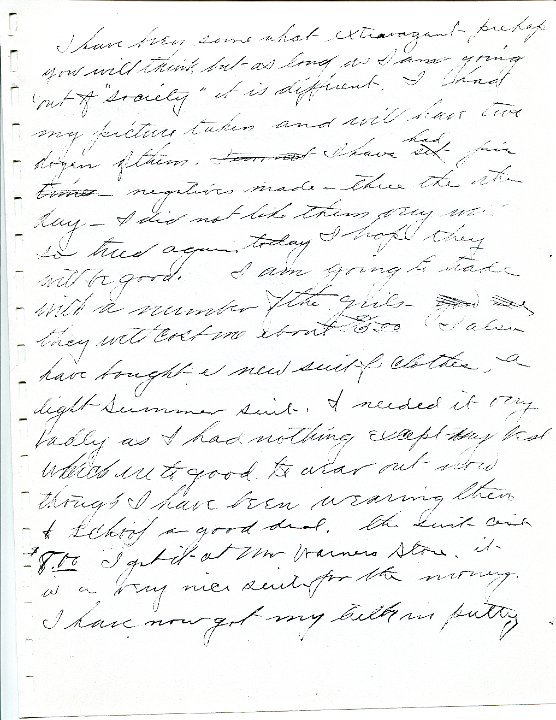 I have been some what extravagant perhap
you will think but as long as I am going
out of "society" it is different. I had
my picture taken and will have two
dozen of them. I have had five
negatives made - three the other
day - I did not like them very
so tried again today I hope they
will be good. I am going to trade
with a number of the girls -
they will cost me about I also
have bought a new suit of clothes, a
light summer suit. I needed it very
badly as I had nothing except my best
which were to good to wear out now
though I have been wearing them
to school a good deal. the suit cost
$8.00 I got it at Mr Warners Store. it
is a very nice suit for the money.
I have now got my in pretty